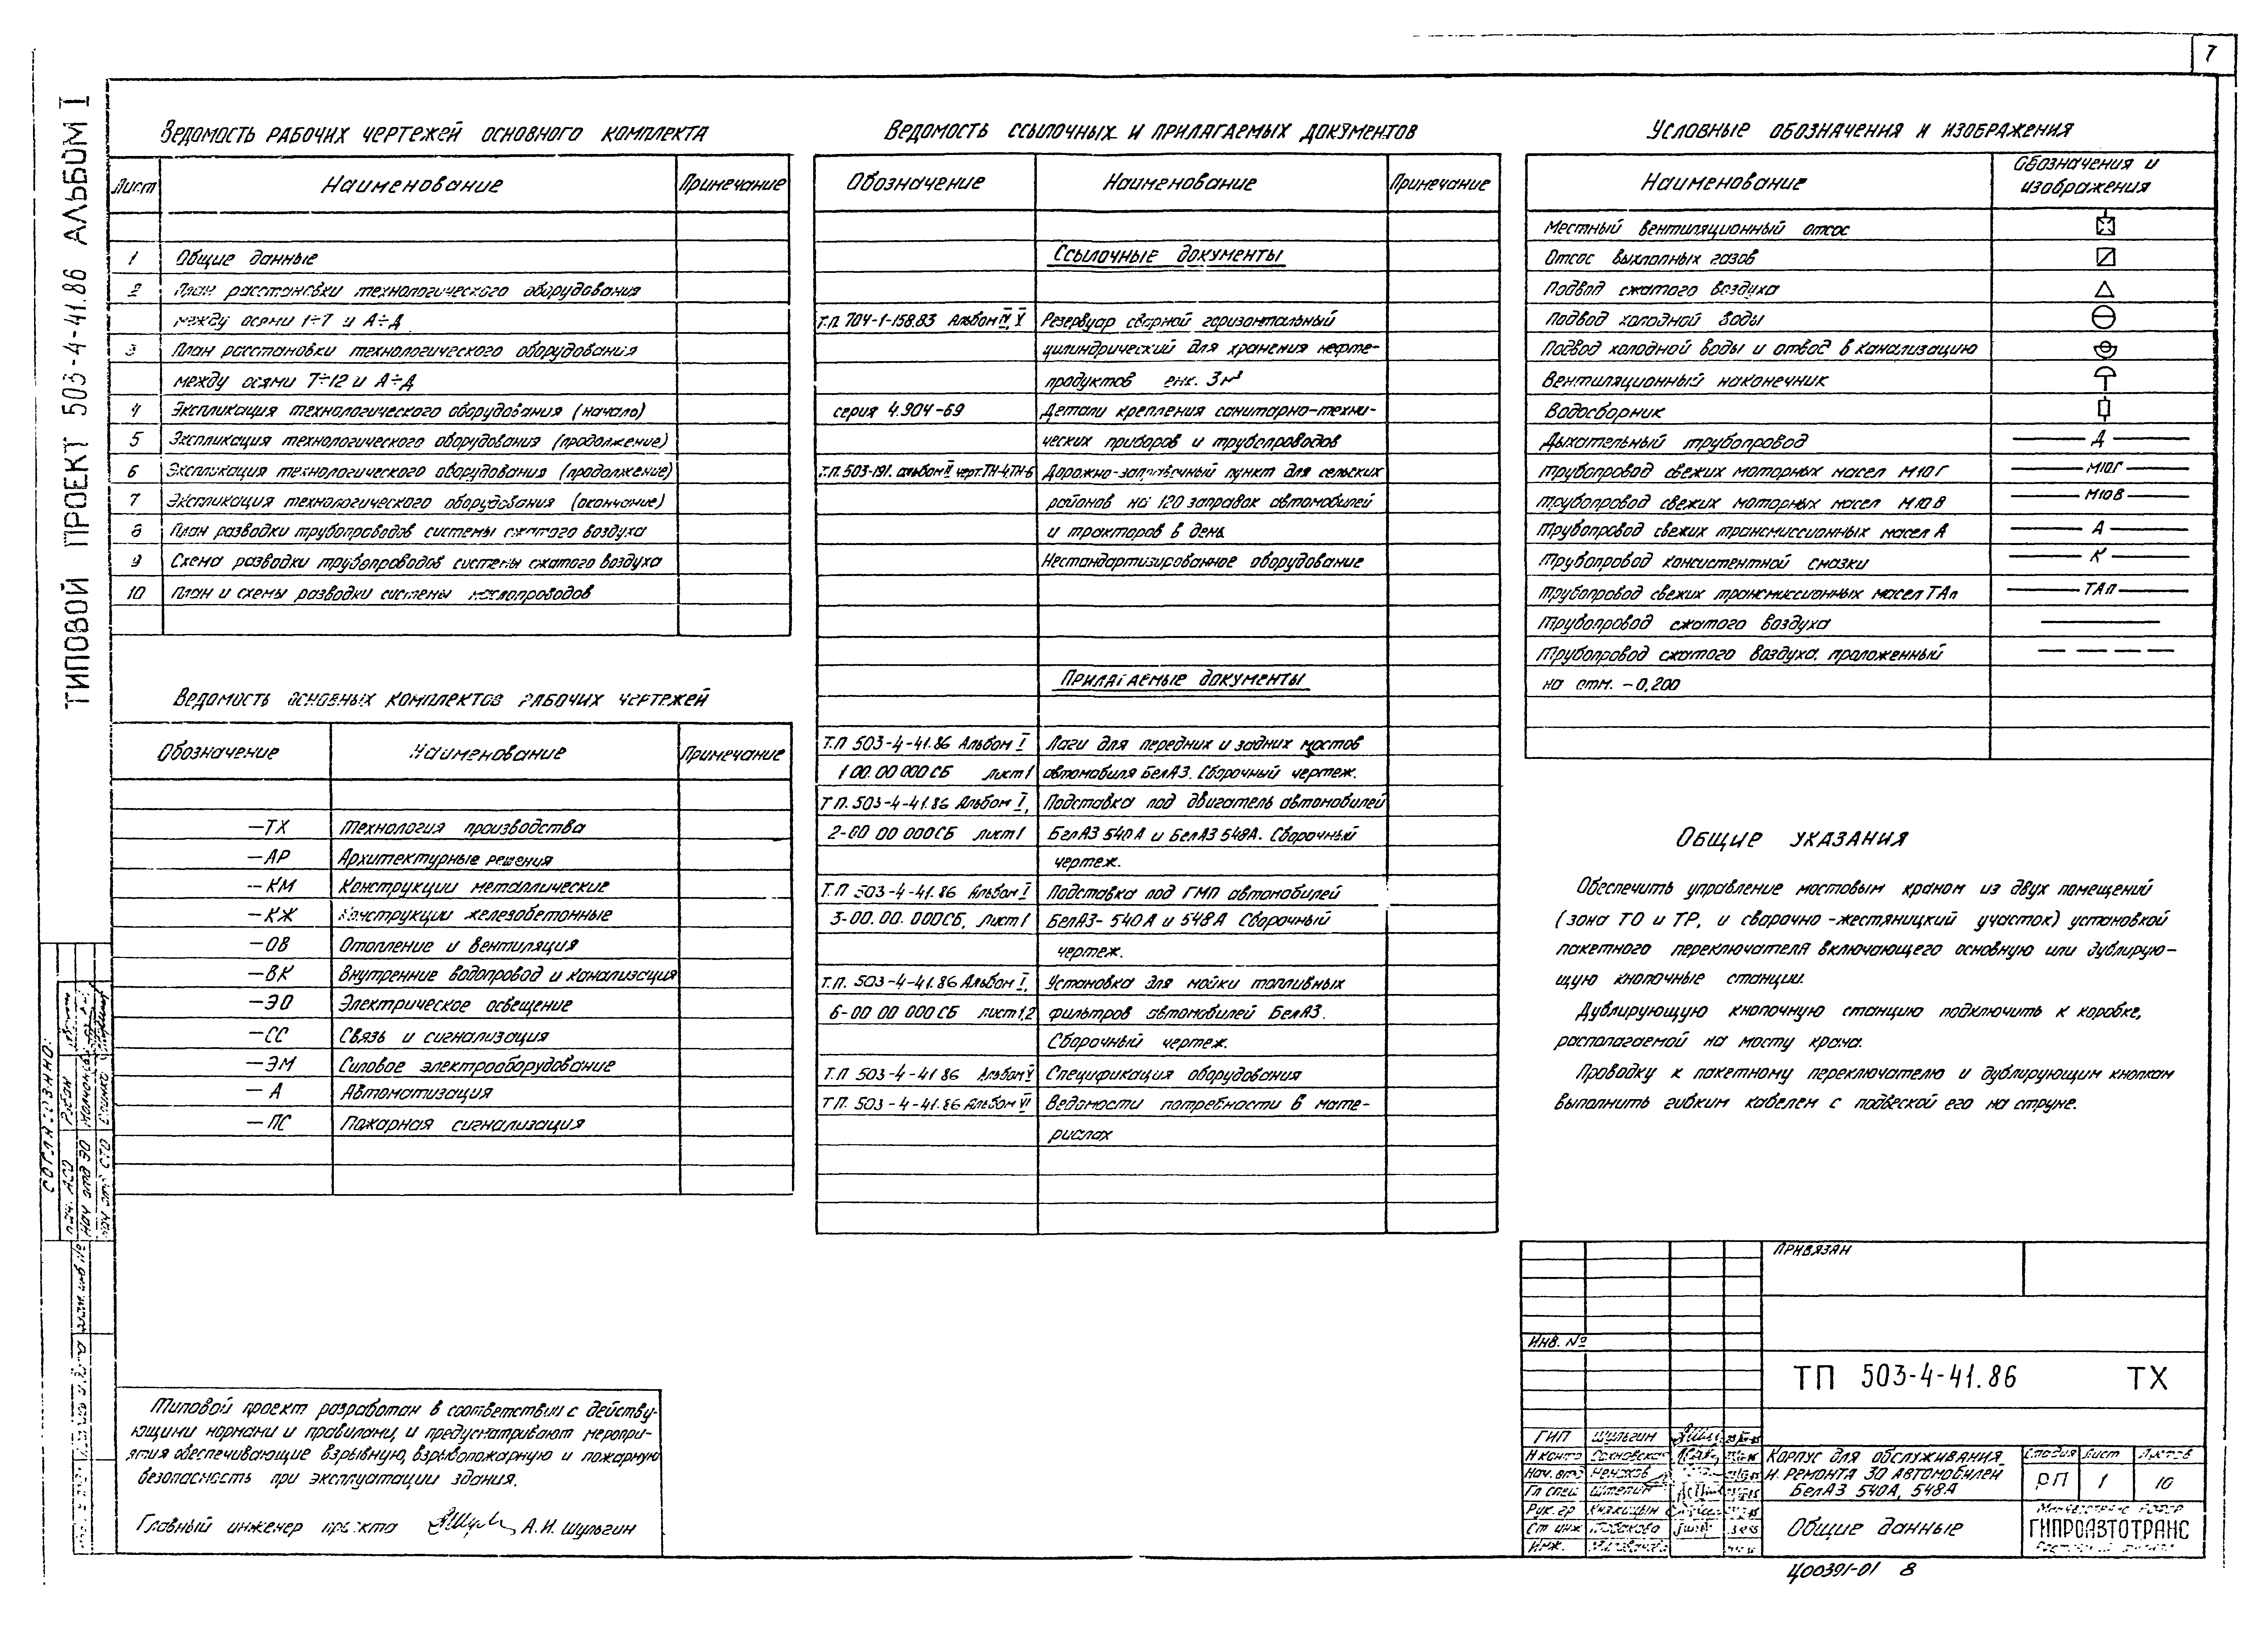 7
ТИПОВОЙ ПРОЕКТ 503-4-41.86 АЛЬБОМ I
Ведомость рабочих чертежей основного комплекта
Лист Наименование Примечание
1 Общие данные
2 План расстановки технологического оборудования
между осями 1÷7 и А÷Д
3 План расстановки технологического оборудования
между осями 7÷12 и А÷Д
4 Экспликация технологического оборудования (начало)
5 Экспликация технологического оборудования (продолжение)
6 Экспликация технологического оборудования (продолжение)
7 Экспликация технологического оборудования (окончание)
8 План разводки трубопроводов системы сжатого воздуха
9 Схема разводки трубопроводов системы сжатого воздуха
10 План и схемы разводки системы маслопроводов
Ведомость основных комплектов рабочих чертежей
Обозначение Наименование Примечание
—ТХ Технология производства
—АР Архитектурные решения
—КМ Конструкции металлические
—КЖ Конструкции железобетонные
—ОВ Отопление и вентиляция
—ВК Внутренние водопровод и канализация
—ЭО Электрическое освещение
—СС Связь и сигнализация
—ЭМ Силовое электрооборудование
—А Автоматизация
—ПС Пожарная сигнализация
Типовой проект разработан в соответствии с действу-
ющими нормами и правилами, и предусматривают меропри-
ятия обеспечивающие взрывную, взрывопожарную и пожарную
безопасность при эксплуатации здания.
Главный инженер проекта А.И. Шульгин
Ведомость ссылочных и прилагаемых документов
Обозначение Наименование Примечание
Ссылочные документы
Т.П. 704-1-158.83 Альбом IV, V Резервуар сварной горизонтальный
цилиндрический для хранения нефте-
продуктов емк. 3м³
серия 4.904-69 Детали крепления санитарно-техни-
ческих приборов и трубопроводов
Т.П. 503-191. альбом II черт. ТН-4,ТН-6 Дорожно-заправочный пункт для сельских
районов на 120 заправок автомобилей
и тракторов в день
Нестандартизированное оборудование
Прилагаемые документы
Т.П 503-4-41.86 Альбом I Лаги для передних и задних мостов
1 00. 00 000 СБ лист 1 автомобиля БелАЗ. Сборочный чертеж.
Т П. 503-4-41.86 Альбом I, Подставка под двигатель автомобилей
2-00 00 000СБ лист 1 БелАЗ 540А и БелАЗ 548А. Сборочный
чертеж.
Т.П 503-4-41.86 Альбом I Подставка под ГМП автомобилей
3-00. 00. 000СБ, лист 1 БелАЗ- 540А и 548А Сборочный
чертеж.
Т.П. 503-4-41.86 Альбом I, Установка для мойки топливных
6-00 00 000 СБ лист 1,2 фильтров автомобилей БелАЗ.
Сборочный чертеж.
Т.П 503-4-41 86 Альбом V Спецификация оборудования
Т П. 503-4-41.86 Альбом VI Ведомости потребности в мате-
риалах
Условные обозначения и изображения
Наименование Обозначения и
изображения
Местный вентиляционный отсос
Отсос выхлопных газов
Подвод сжатого воздуха
Подвод холодной воды
Подвод холодной воды и отвод в канализацию
Вентиляционный наконечник
Водосборник
Дыхательный трубопровод Д
Трубопровод свежих моторных масел М10Г М10Г
Трубопровод свежих моторных масел М10В М10В
Трубопровод свежих трансмиссионных масел А А
Трубопровод консистентной смазки К
Трубопровод свежих трансмиссионных масел ТАп ТАп
Трубопровод сжатого воздуха
Трубопровод сжатого воздуха, проложенный
на отм. -0,200
Общие указания
Обеспечить управление мостовым краном из двух помещений
(зона ТО и ТР, и сварочно-жестяницкий участок) установкой
пакетного переключателя включающего основную или дублирую-
щую кнопочные станции.
Дублирующую кнопочную станцию подключить к коробке,
располагаемой на мосту крана.
Проводку к пакетному переключателю и дублирующим кнопкам
выполнить гибким кабелем с подвеской его на струне.
Привязан
Инв. №
ТП 503-4-41.86 ТХ
ГИП Шульгин
Н контр
Нач. отд
Гл спец
Рук. гр
Ст инж
Инж.
Корпус для обслуживания
и ремонта 30 автомобилей
БелАЗ 540А, 548А
Стадия Лист Листов
РП 1 10
Общие данные
ГИПРОАВТОТРАНС
Согласовано:
Ц00391-01 8